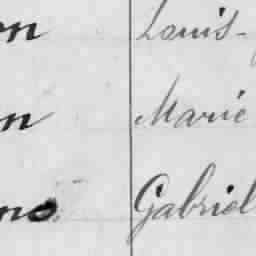 on Louis-
n Marie
ns. Gabriel